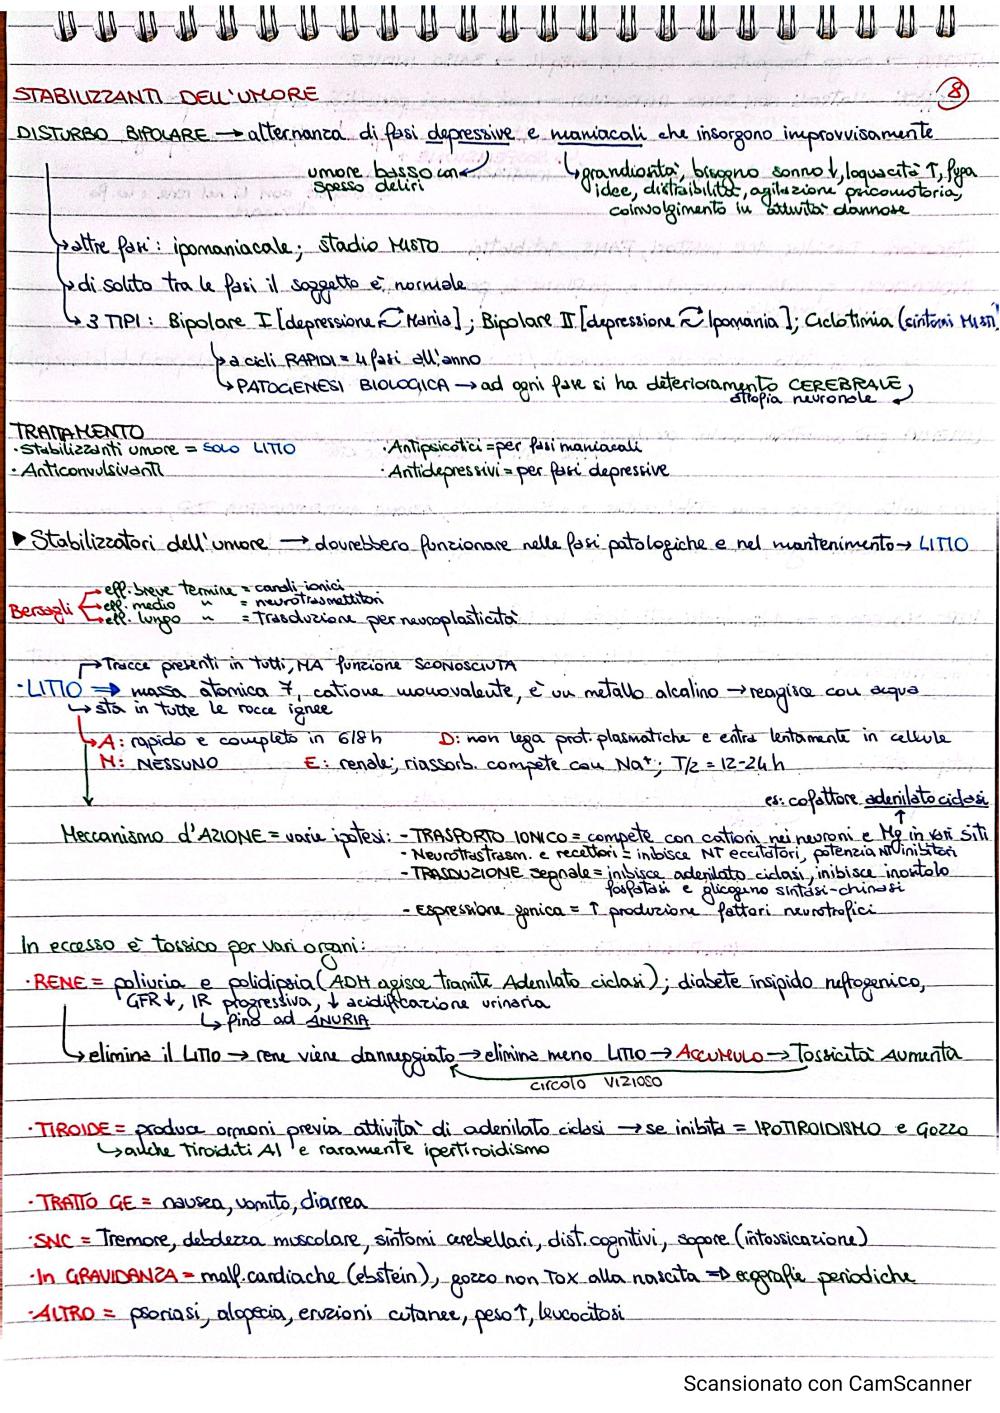 STABILIZZANTI DELL'UMORE
8
DISTURBO BIPOLARE → alternanza di fasi depressive e maniacali che insorgono improvvisamente
umore basso con spesso deliri
grandiosità, bisogno sonno ↓, loquacità ↑, fuga
idee, distraibilità, agitazione psicomotoria,
coinvolgimento in attività dannose
→ altre fasi: ipomaniacale; stadio MISTO
→ di solito tra le fasi il soggetto è normale
→ 3 TIPI: Bipolare I [depressione ⇄ Mania]; Bipolare II [depressione ⇄ Ipomania]; Ciclotimia (sintomi MISTI)
→ a cicli RAPIDI = 4 fasi all'anno
→ PATOGENESI BIOLOGICA → ad ogni fase si ha deterioramento CEREBRALE
atrofia neuronale
TRATTAMENTO
· Stabilizzanti umore = SOLO LITIO · Antipsicotici = per fasi maniacali
· Anticonvulsivanti · Antidepressivi = per fasi depressive
▶ Stabilizzatori dell'umore → dovrebbero funzionare nelle fasi patologiche e nel mantenimento → LITIO
Bersagli
eff. breve termine = canali ionici
eff. medio " = neurotrasmettitori
eff. lungo " = trasduzione per neuroplasticità
→ Tracce presenti in tutti, MA funzione SCONOSCIUTA
· LITIO ⇒ massa atomica 7, catione monovalente, è un metallo alcalino → reagisce con acqua
→ sta in tutte le rocce ignee
→ A: rapido e completo in 6/8 h D: non lega prot. plasmatiche e entra lentamente in cellule
M: NESSUNO E: renale; riassorb. compete con Na⁺; T/2 = 12-24h
es: cofattore adenilato ciclasi
Meccanismo d'AZIONE = varie ipotesi: - TRASPORTO IONICO = compete con cationi nei neuroni e Mg in vari siti
- Neurotrastrasm. e recettori = inibisce NT eccitatori, potenzia NT inibitori
- TRASDUZIONE segnale = inibisce adenilato ciclasi, inibisce inositolo
fosfatasi e glicogeno sintasi-chinasi
- Espressione genica = ↑ produzione fattori neurotrofici
In eccesso è tossico per vari organi:
· RENE = poliuria e polidipsia (ADH agisce tramite Adenilato ciclasi); diabete insipido nefrogenico,
GFR ↓, IR progressiva, ↓ acidificazione urinaria
→ fino ad ANURIA
→ elimina il LITIO → rene viene danneggiato → elimina meno LITIO → ACCUMULO → Tossicità Aumenta
CIRCOLO VIZIOSO
· TIROIDE = produce ormoni previa attività di adenilato ciclasi → se inibita = IPOTIROIDISMO e GOZZO
→ anche Tiroiditi AI e raramente ipertiroidismo
· TRATTO GE = nausea, vomito, diarrea
· SNC = Tremore, debolezza muscolare, sintomi cerebellari, dist. cognitivi, sopore (intossicazione)
· In GRAVIDANZA = malf. cardiache (ebstein), gozzo non TOX alla nascita ⇒ ecografie periodiche
· ALTRO = psoriasi, alopecia, eruzioni cutanee, peso ↑, leucocitosi
Scansionato con CamScanner